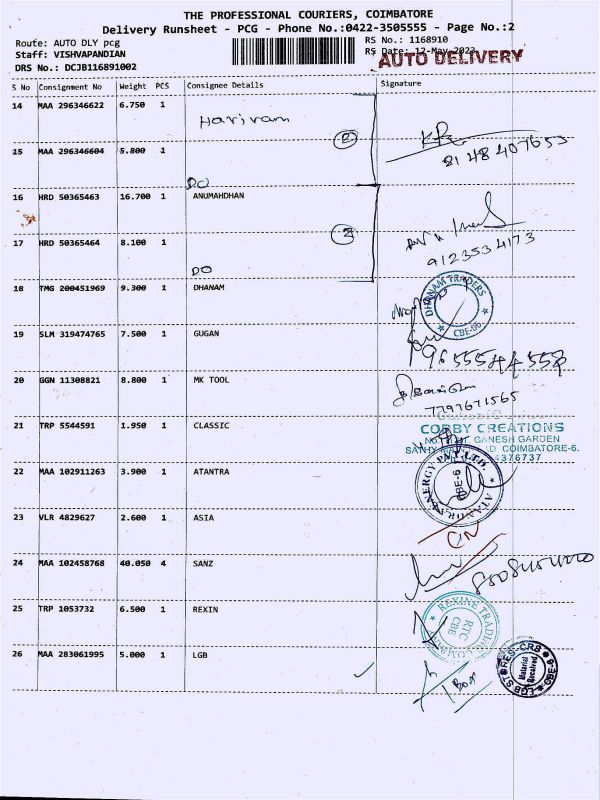 THE PROFESSIONAL COURIERS, COIMBATORE
Delivery Runsheet - PCG - Phone No.:0422-3505555 - Page No.:2
Route: AUTO DLY pcg
RS No.: 1168910
Staff: VISHVAPANDIAN
RS Date: 12-May-2023
AUTO DELIVERY
DRS No.: DCJB116891002
S No Consignment No Weight PCS Consignee Details Signature
14 MAA 296346622 6.750 1 Hariram
2
15 MAA 296346604 5.800 1
8148407653
DO
16 HRD 50365463 16.700 1 ANUMAHDHAN
2
17 HRD 50365464 8.100 1
9123534173
DO
18 TMG 200451969 9.300 1 DHANAM
DHANAM TRADERS
CBE-06
19 SLM 319474765 7.500 1 GUGAN
20 GGN 11308821 8.800 1 MK TOOL
21 TRP 5544591 1.950 1 CLASSIC
CORBY CREATIONS
GANESH GARDEN
COIMBATORE-6.
4376737
22 MAA 102911263 3.900 1 ATANTRA
ENERGY PVT LTD.
CBE-6
23 VLR 4829627 2.600 1 ASIA
24 MAA 102458768 40.050 4 SANZ
25 TRP 1053732 6.500 1 REXIN
REXINE TRADING
RTC
CBE
26 MAA 283061995 5.000 1 LGB
1 Box
LGB STORES-CRB
Material
Received
CBE-6